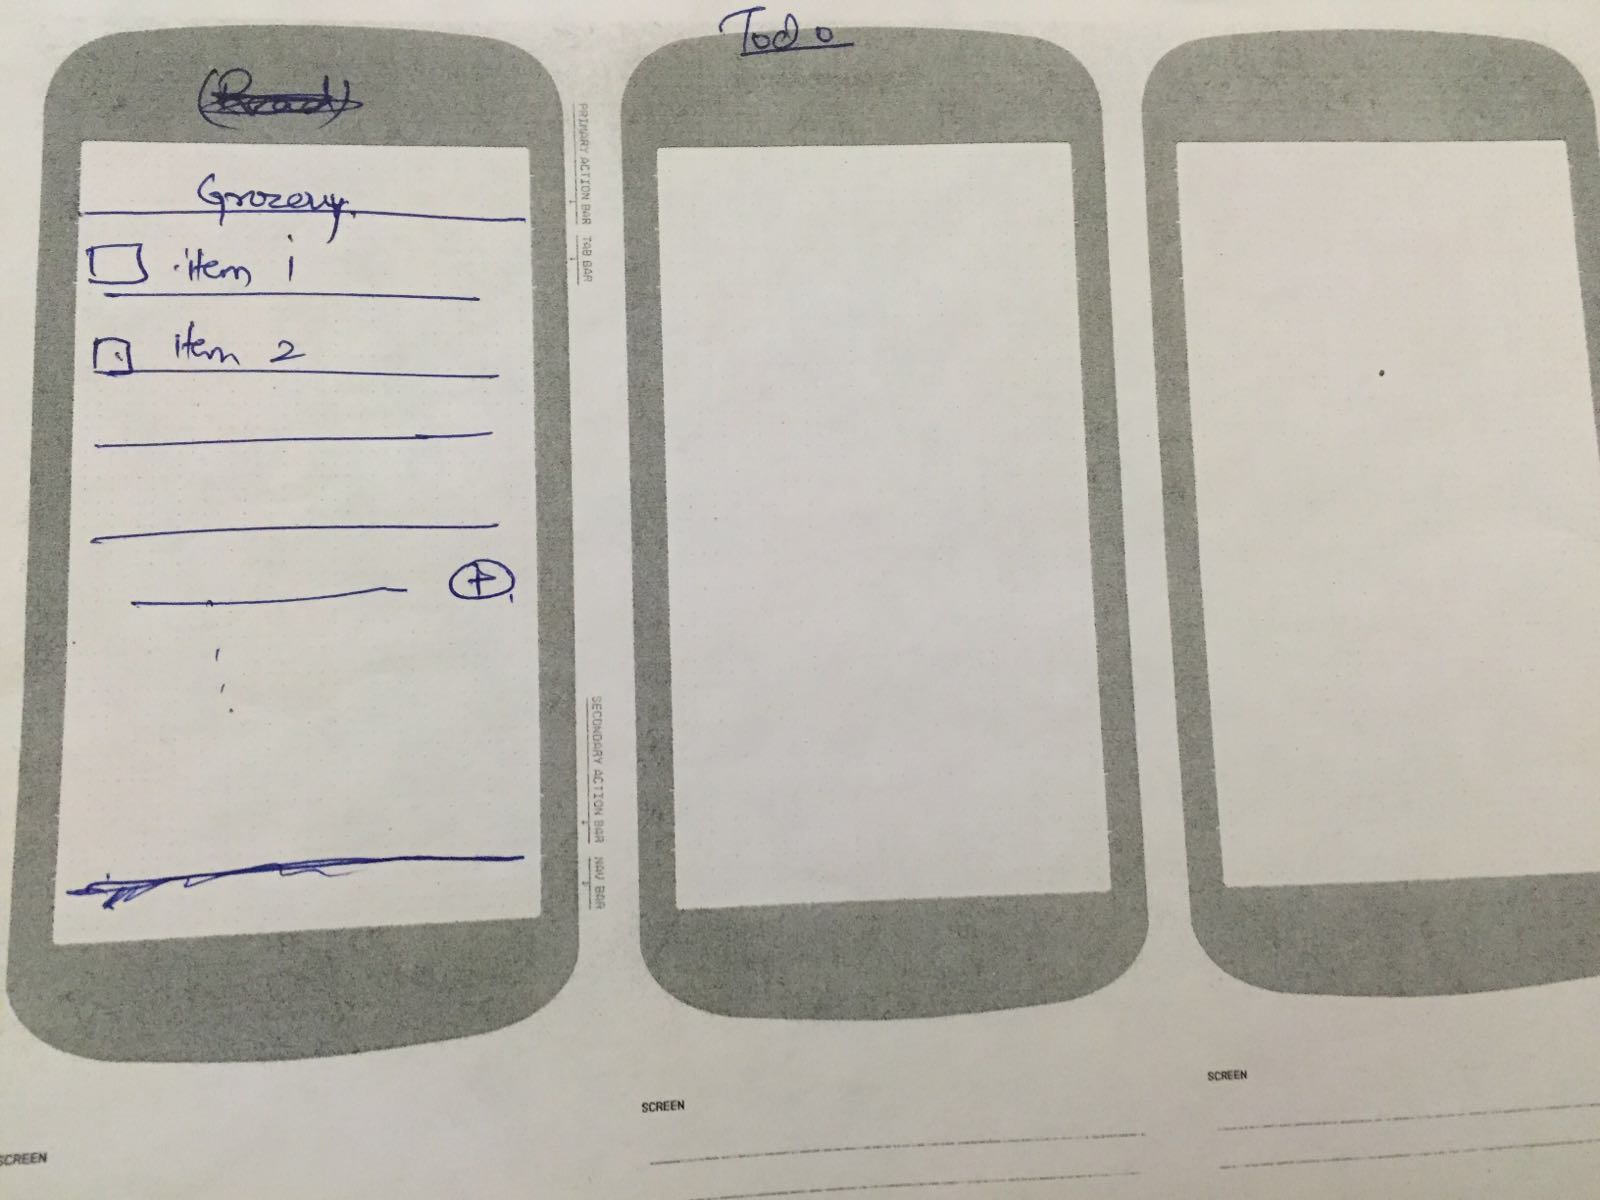 Todo
Grozery
item 1
item 2
PRIMARY ACTION BAR
TAB BAR
SECONDARY ACTION BAR
NAV BAR
SCREEN
SCREEN
SCREEN